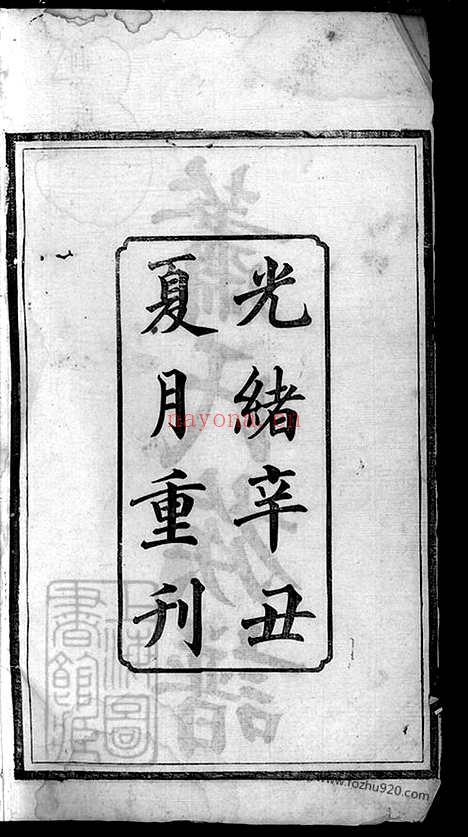 光緒辛丑
夏月重刊
nayona.cn
www.fozhu920.com